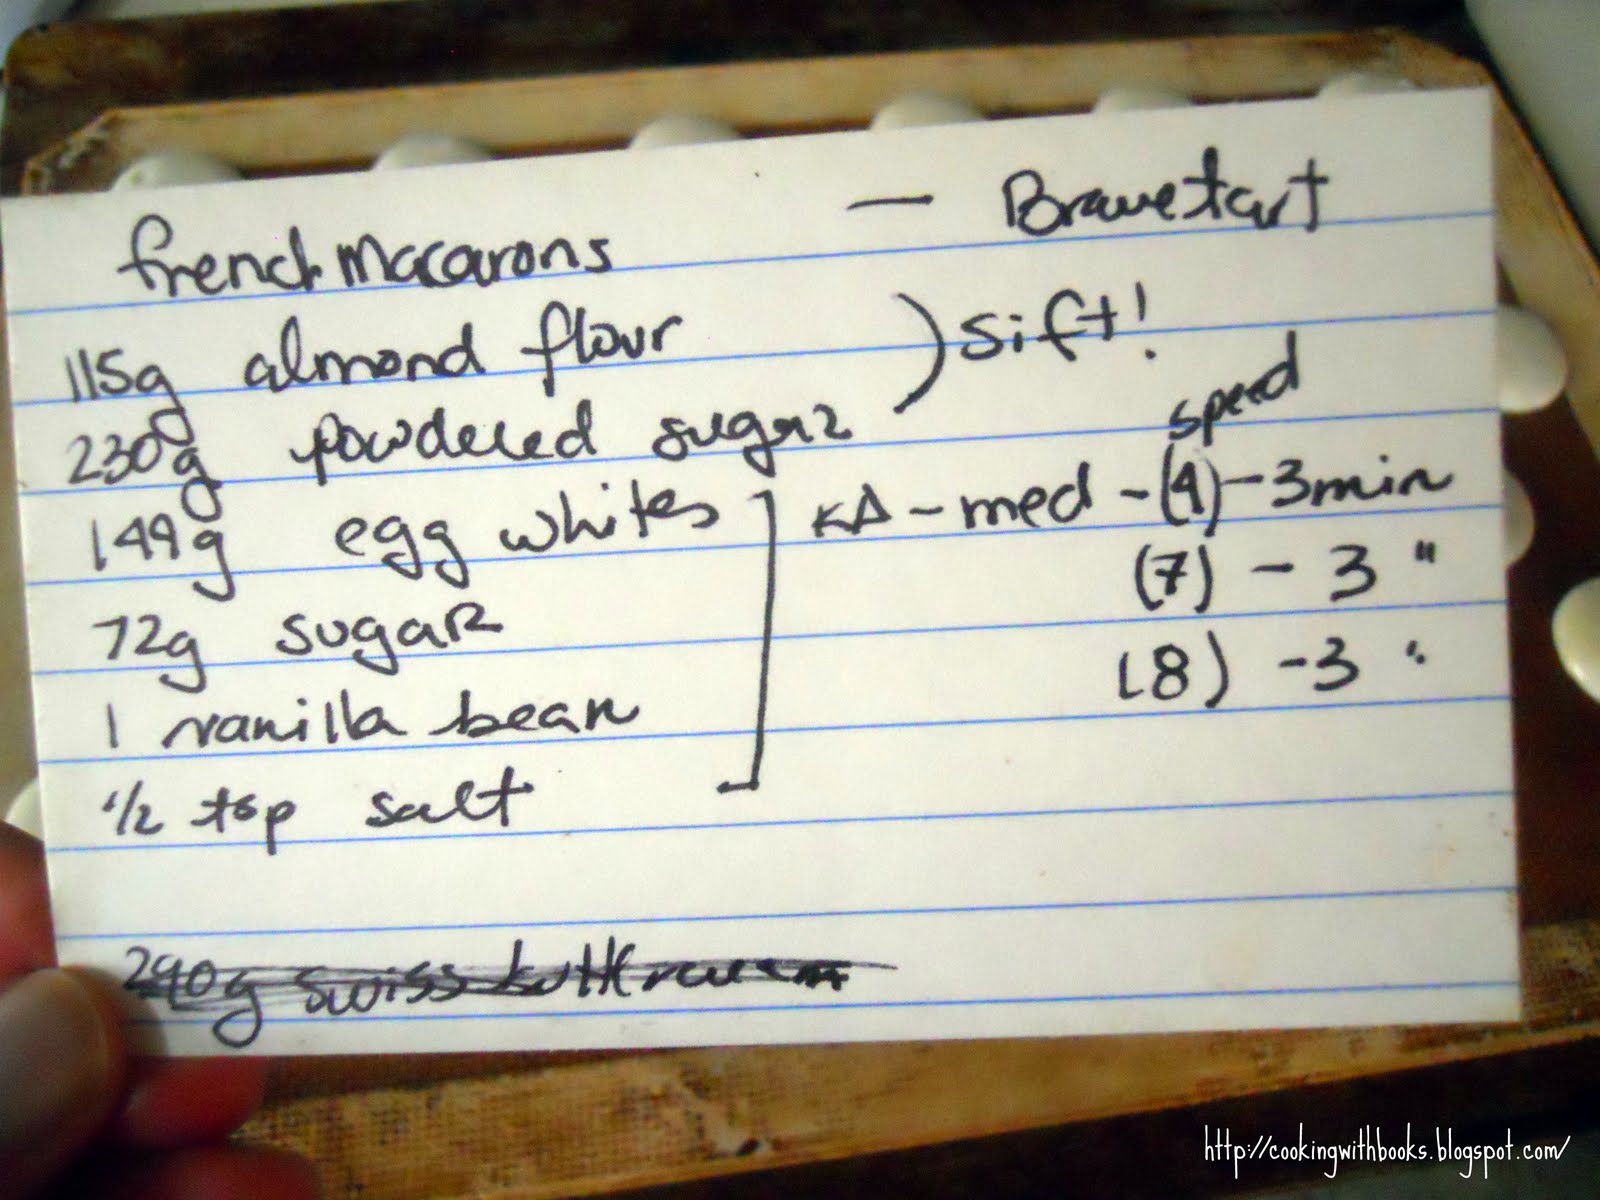 french macarons — Bravetart
115g almond flour ) sift!
230g powdered sugar
speed
149g egg whites ] KA - med - (4) - 3min
(7) - 3 "
72g sugar
(8) - 3 "
1 vanilla bean
1/2 tsp salt
290g swiss buttercream
http://cookingwithbooks.blogspot.com/